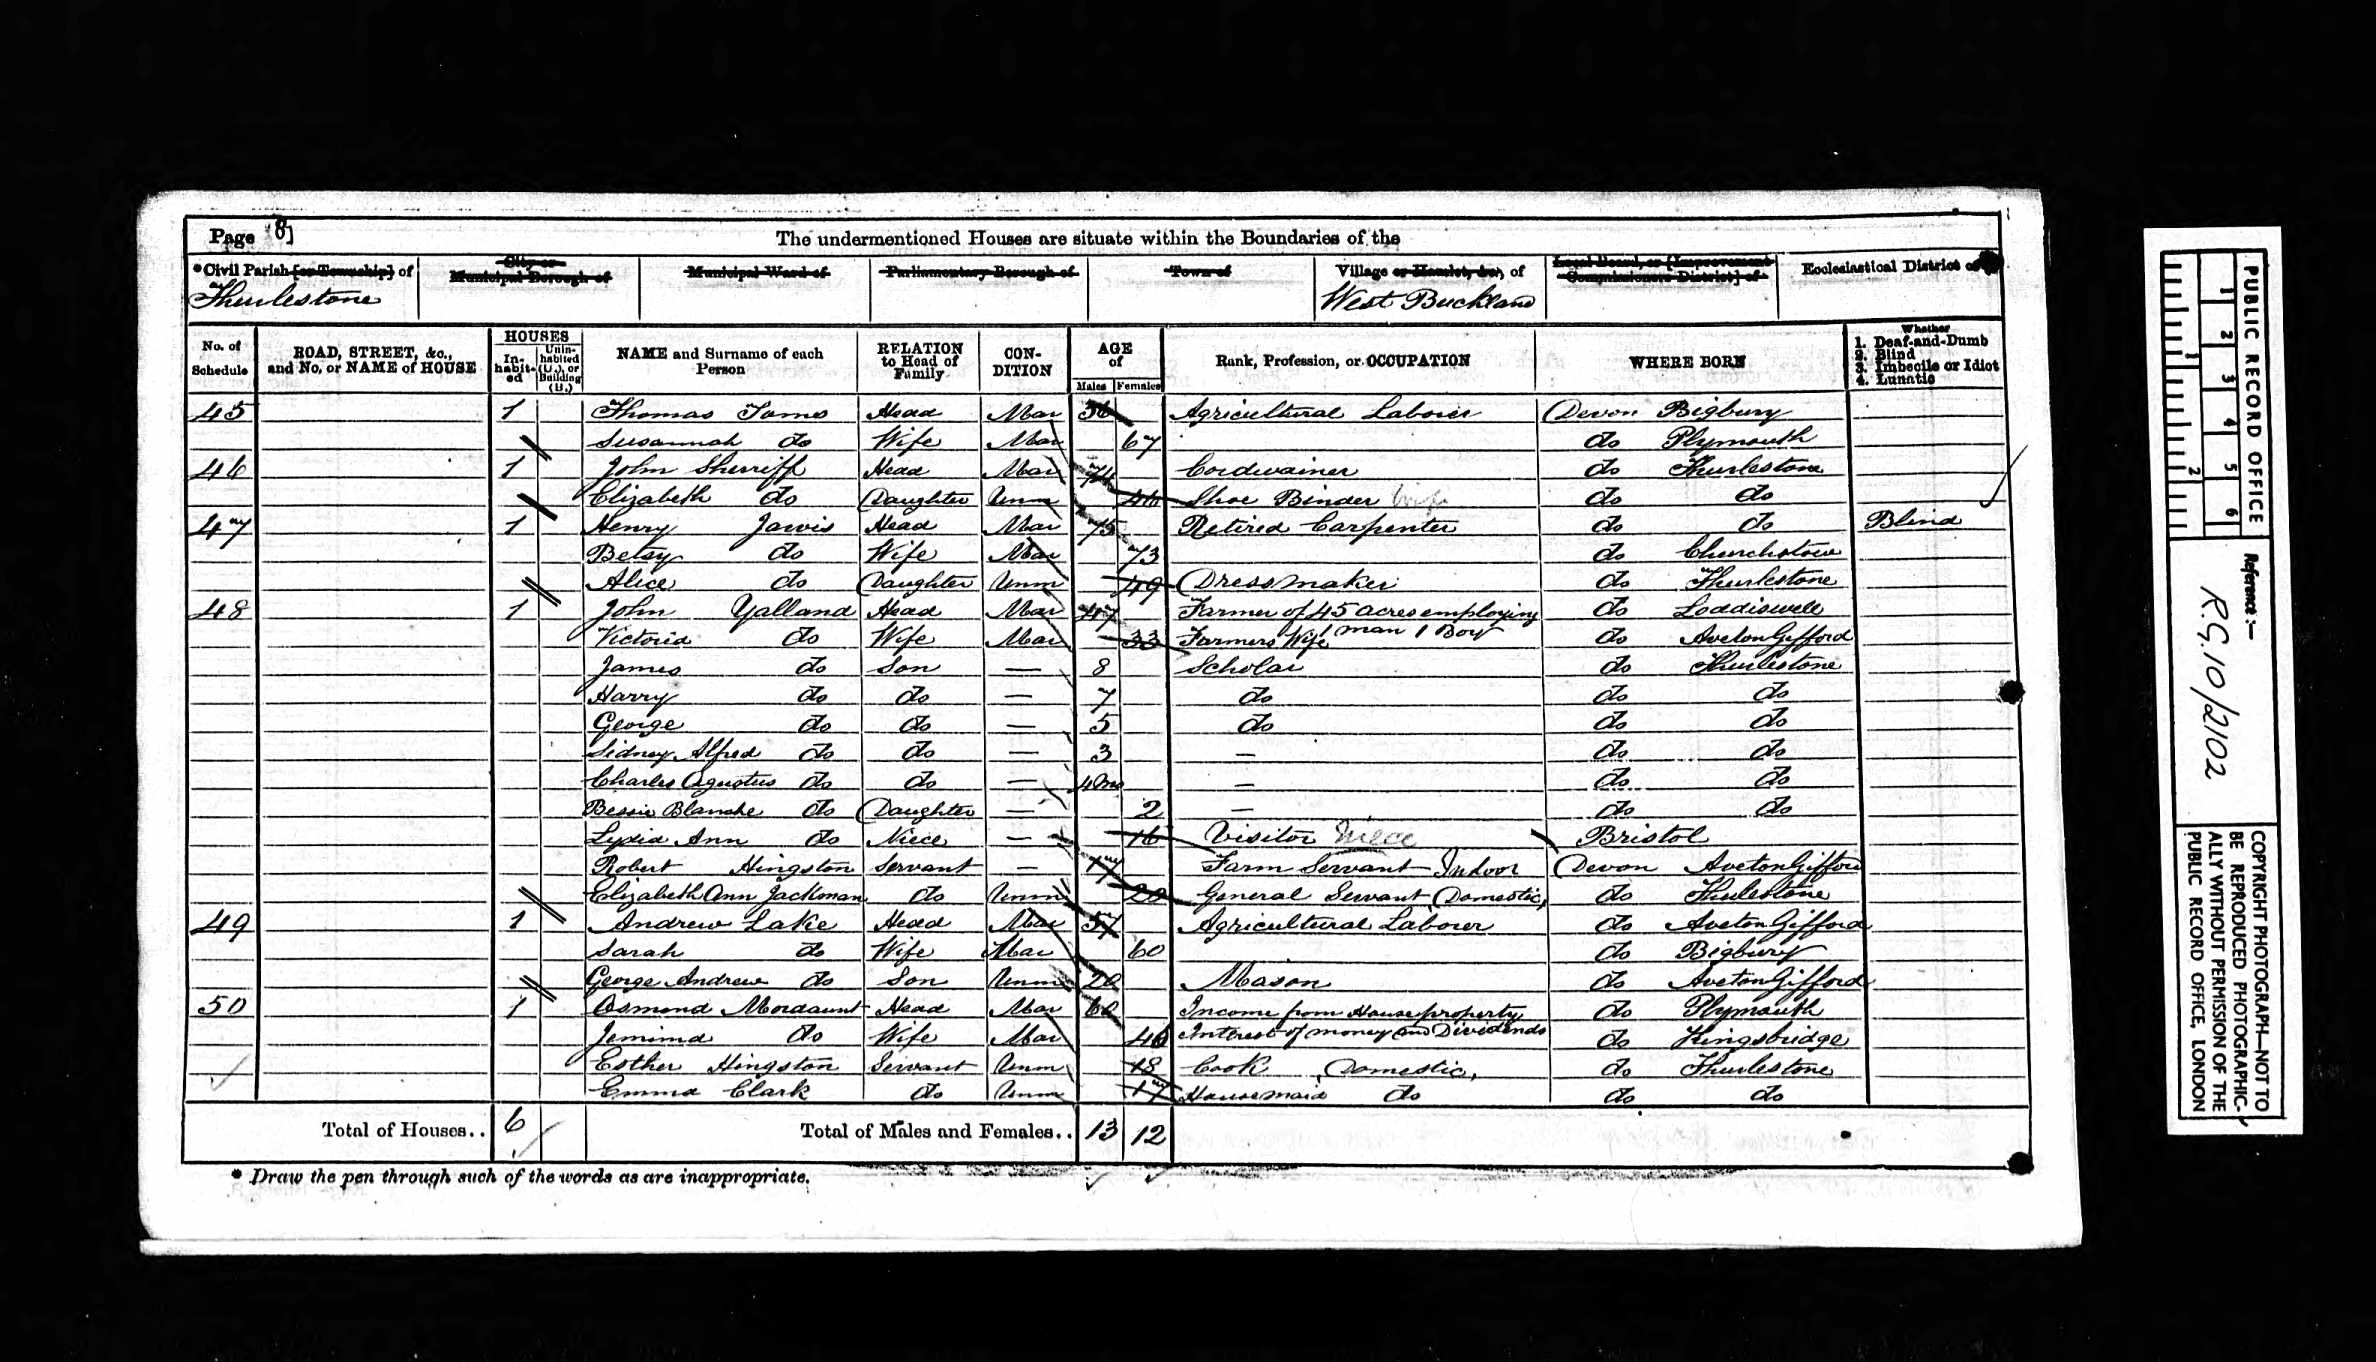 Page 8]
The undermentioned Houses are situate within the Boundaries of the
*Civil Parish [or Township] of
Thurlestone
City or Municipal Borough of
Municipal Ward of
Parliamentary Borough of
Town of
Village or Hamlet, &c., of
West Buckland
Local Board, or [Improvement Commissioners District] of
Ecclesiastical District of
No. of Schedule
ROAD, STREET, &c., and No. or NAME of HOUSE
HOUSES
In-habit-ed
Unin-habited (U.), or Building (B.)
NAME and Surname of each Person
RELATION to Head of Family
CON-DITION
AGE of
Males
Females
Rank, Profession, or OCCUPATION
WHERE BORN
Whether
1. Deaf-and-Dumb
2. Blind
3. Imbecile or Idiot
4. Lunatic
45 1 Thomas Toms Head Mar 56 Agricultural Laborer Devon Bigbury
Susannah do Wife Mar 67 do Plymouth
46 1 John Sherriff Head Mar 74 Cordwainer do Thurlestone
Elizabeth do Daughter Unm 46 Shoe Binder do do
47 1 Henry Jarvis Head Mar 75 Retired Carpenter do do Blind
Betsy do Wife Mar 73 do Churchstow
Alice do Daughter Unm 49 Dressmaker do Thurlestone
48 1 John Yalland Head Mar 47 Farmer of 45 acres employing do Loddiswell
Victoria do Wife Mar 33 Farmers Wife 1 man 1 Boy do Aveton Gifford
James do Son — 8 Scholar do Thurlestone
Harry do do — 7 do do do
George do do — 5 do do do
Sidney Alfred do do — 3 — do do
Charles Agustus do do — 4mo — do do
Bessie Blanche do Daughter — 2 — do do
Lydia Ann do Niece — 16 Visitor Niece Bristol
Robert Hingston Servant — 17 Farm Servant Indoor Devon Aveton Gifford
Elizabeth Ann Jackman do Unm 20 General Servant (Domestic) do Thurlestone
49 1 Andrew Lake Head Mar 57 Agricultural Laborer do Aveton Gifford
Sarah do Wife Mar 60 do Bigbury
George Andrew do Son Unm 20 Mason do Aveton Gifford
50 1 Osmond Mordaunt Head Mar 60 Income from House property do Plymouth
Jemima do Wife Mar 46 Interest of money and Dividends do Kingsbridge
Esther Hingston Servant Unm 18 Cook (Domestic) do Thurlestone
Emma Clark do Unm 17 Housemaid do do do
Total of Houses.. 6 Total of Males and Females.. 13 12
* Draw the pen through such of the words as are inappropriate.
PUBLIC RECORD OFFICE
1 2 3 4 5 6
1 2
Reference:—
R.G. 10/2102
COPYRIGHT PHOTOGRAPH—NOT TO
BE REPRODUCED PHOTOGRAPHIC-
ALLY WITHOUT PERMISSION OF THE
PUBLIC RECORD OFFICE, LONDON